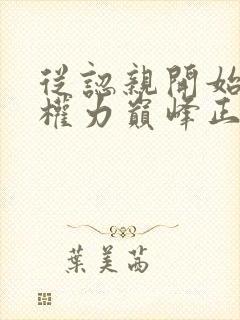 從認親開始
權力巔峰正
葉美茜